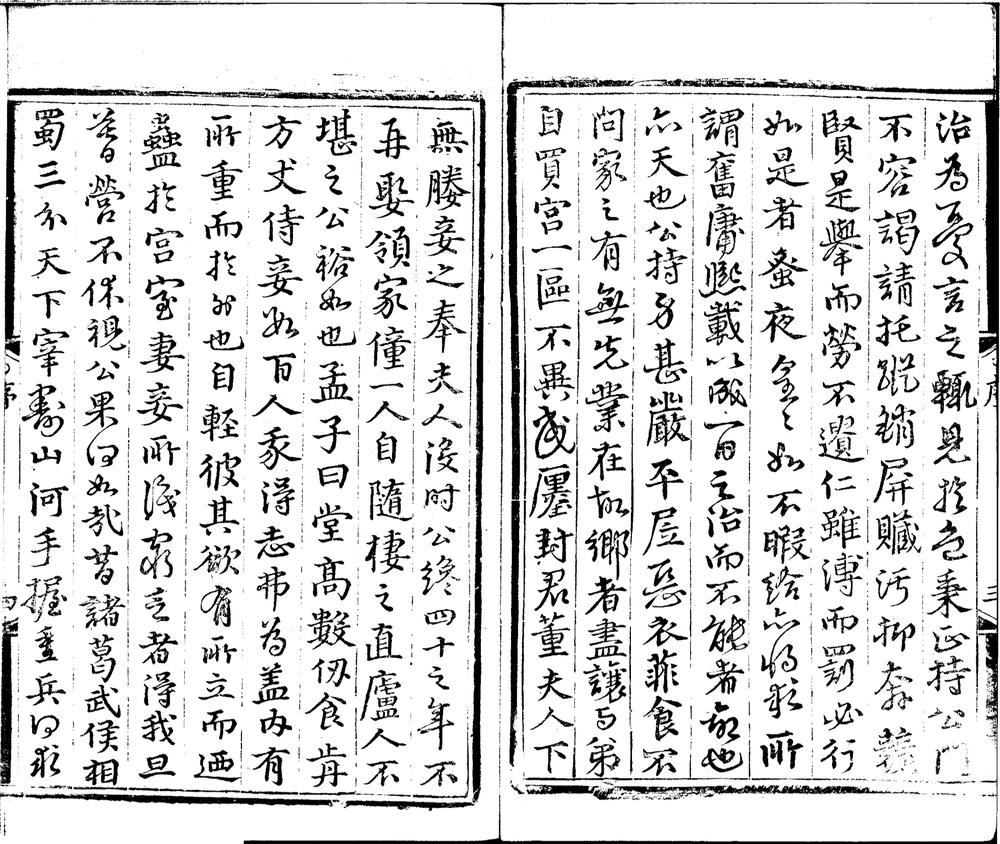 治為憂言之輒見於色秉正持公門
不容謁請托蹤銷屏贓污抑奔競
賢是舉而勞不遺仁雖溥而罰必行
如是者蚤夜皇皇如不暇給亦將求所
謂奮庸熙載以成一百之治而不能者勢也
亦天也公持身甚嚴平居惡衣菲食不
問家之有無先業在故鄉者盡讓与弟
自買宮一區不異民廛封君董夫人下
無媵妾之奉夫人沒時公纔四十之年不
再娶領家僮一人自隨棲之直廬人不
堪之公裕如也孟子曰堂高數仞食前
方丈侍妾數百人我得志弗為盖內有
所重而於外也自輕彼其欲有所立而迺
蠱於宮室妻妾所識窮乏者得我旦
暮營不休視公果何如哉昔諸葛武侯相
蜀三分天下宰割山河手握重兵何求